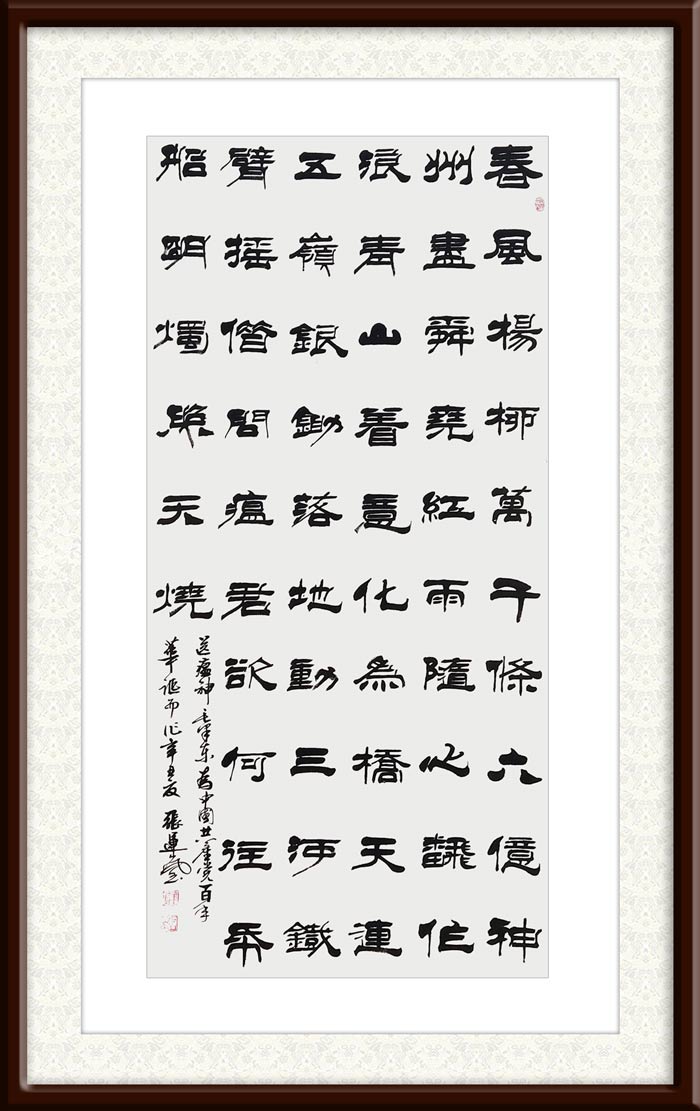 春風楊柳萬千條六億神
州盡舜堯紅雨隨心翻作
浪青山着意化為橋天連
五嶺銀鋤落地動三河鐵
臂搖借問瘟君欲何往帋
船明燭照天燒
送瘟神毛澤东為中國共產党百年
華誕而作辛丑夏張運